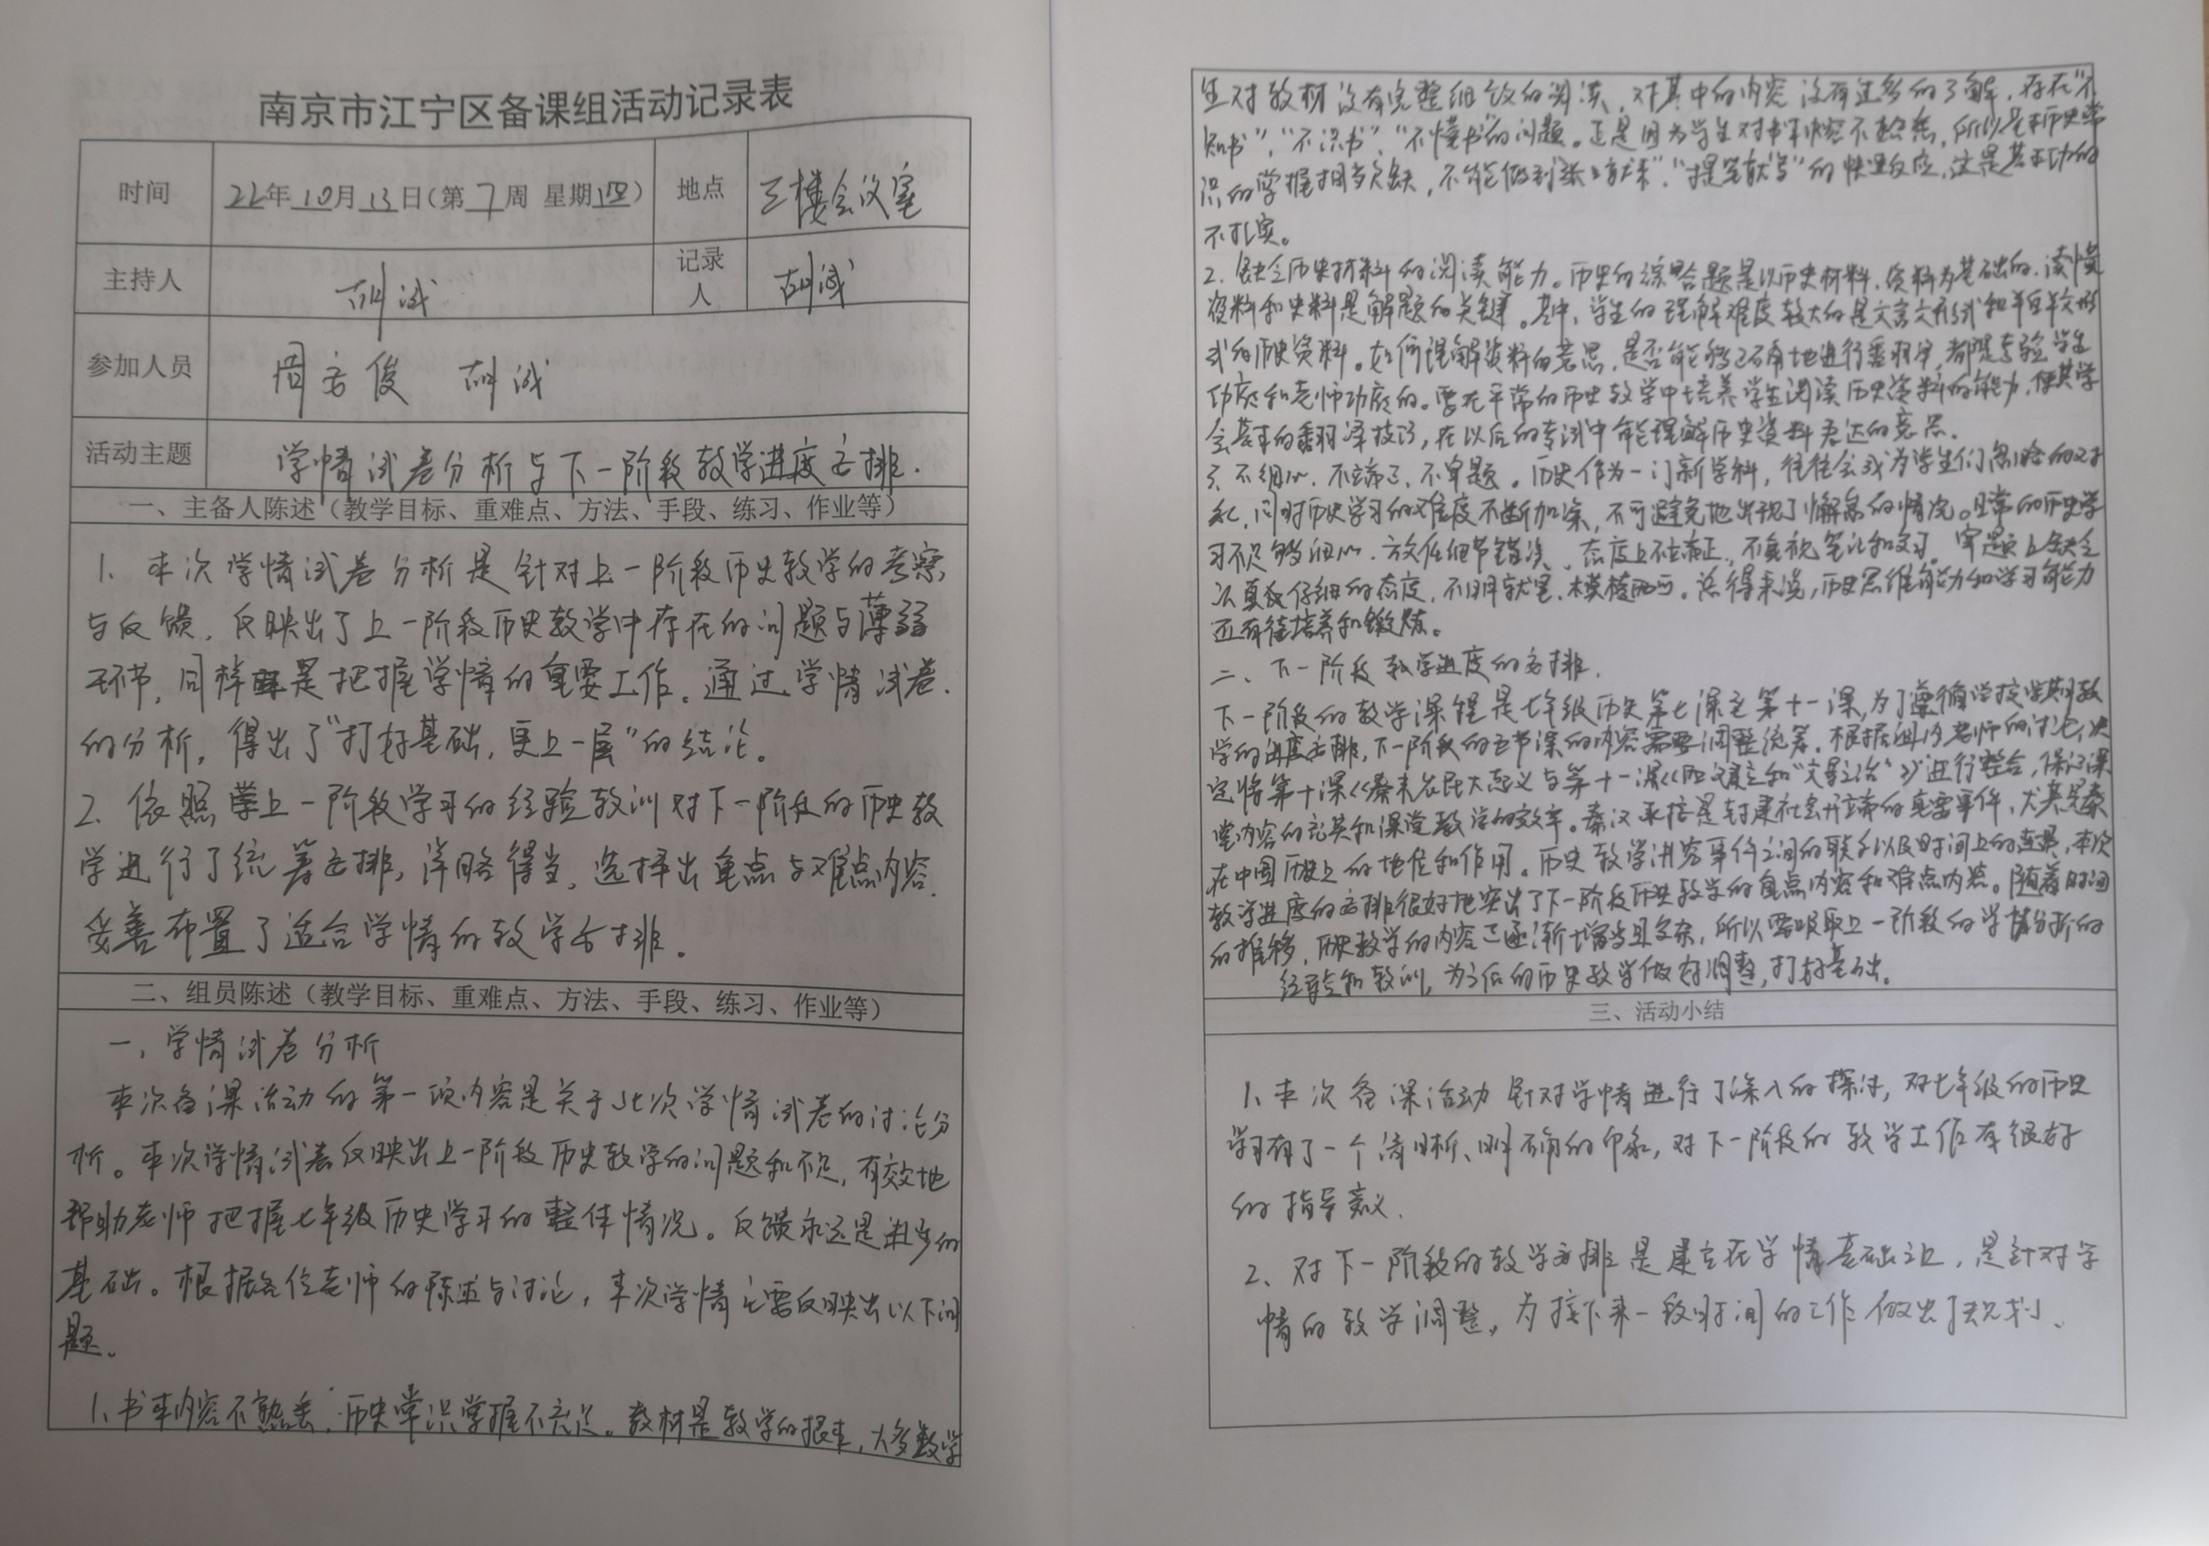 南京市江宁区备课组活动记录表
时间 22年10月13日(第7周 星期四) 地点 三楼会议室
主持人 胡诚 记录人 胡诚
参加人员 周志俊 胡诚
活动主题 学情试卷分析与下一阶段教学进度安排.
一、主备人陈述（教学目标、重难点、方法、手段、练习、作业等）
1、本次学情试卷分析是针对上一阶段历史教学的考察
与反馈，反映出了上一阶段历史教学中存在的问题与薄弱
环节，同样是把握学情的重要工作。通过学情试卷
的分析，得出了“打好基础，更上一层”的结论。
2、依照上一阶段学习的经验教训对下一阶段的历史教
学进行了统筹安排，详略得当，选择出重点与难点内容.
妥善布置了适合学情的教学安排.
二、组员陈述（教学目标、重难点、方法、手段、练习、作业等）
一、学情试卷分析
本次备课活动的第一项内容是关于此次学情试卷的讨论分
析。本次学情试卷反映出上一阶段历史教学的问题和不足，有效地
帮助老师把握七年级历史学习的整体情况。反馈永远是进步的
基础。根据各位老师的陈述与讨论，本次学情主要反映出以下问
题。
1、书本内容不熟悉，历史常识掌握不充足。教材是教学的根本，大多数学
生对教材没有完整细致的阅读，对其中的内容没有过多的了解，存在“不
知书”，“不识书”，“不懂书”的问题。正是因为学生对书本内容不熟悉，所以基本历史常
识的掌握相当欠缺，不能做到张口就来”，“提笔就写”的快速反应，这是基本功的
不扎实。
2、缺乏历史材料的阅读能力。历史的综合题是以历史材料、资料为基础的，读懂
资料和史料是解题的关键。其中，学生的理解难度较大的是文言文形式和半白半文形
式的历史资料。如何理解资料的意思，是否能够正确地进行翻译，都是考验学生
功底和老师功底的。要在平常的历史教学中培养学生阅读历史资料的能力，使其学
会基本的翻译技巧，在以后的考试中能理解历史资料表达的意思.
3、不细心、不端正、不审题。历史作为一门新学科，往往会成为学生们忽略的对
象，同时历史学习的难度不断加深，不可避免地出现了懈怠的情况。日常的历史学
习不足够细心，放任细节错误、态度上不端正，不重视笔记和复习。审题上缺乏
认真仔细的态度，不明就里，模棱两可。总得来说，历史思维能力和学习能力
还有待培养和锻炼。
二、下一阶段教学进度的安排.
下一阶段的教学课程是七年级历史第七课至第十一课，为了遵循学校学期教
学的进度安排，下一阶段的五节课的内容需要调整统筹，根据组内老师的讨论，决
定将第十课《秦末农民大起义与第十一课《西汉建立和“文景之治”》进行整合，保证课
堂内容的充实和课堂教学的效率。秦汉承接是封建社会开端的重要事件，尤其是秦
在中国历史上的地位和作用。历史教学讲究事件之间的联系以及时间上的连贯，本次
教学进度的安排很好地突出了下一阶段历史教学的重点内容和难点内容。随着时间
的推移，历史教学的内容正逐渐增多且复杂，所以需吸取上一阶段的学情分析的
经验和教训，为之后的历史教学做好调整，打好基础。
三、活动小结
1、本次备课活动针对学情进行了深入的探讨，对七年级的历史
学习有了一个清晰、明确的印象，对下一阶段的教学工作有很好
的指导意义.
2、对下一阶段的教学安排是建立在学情基础之上，是针对学
情的教学调整，为接下来一段时间的工作做出了规划、